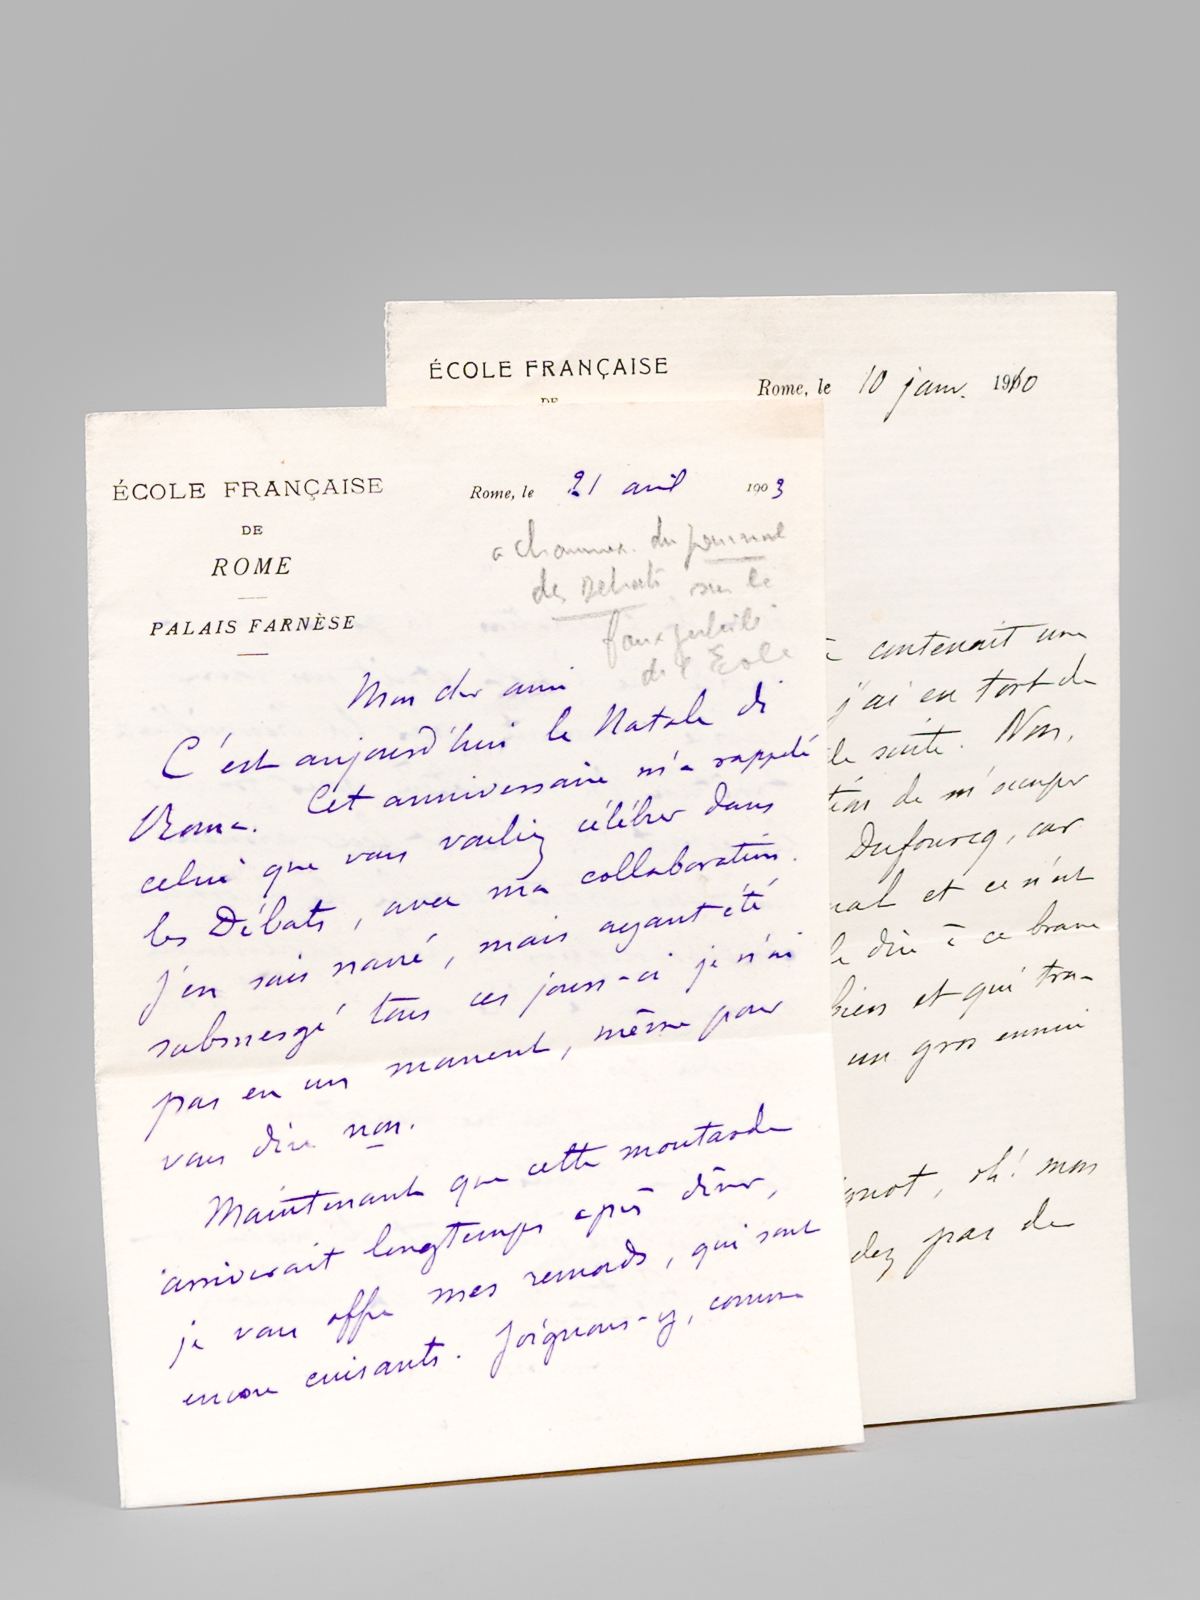 ÉCOLE FRANÇAISE
DE
ROME
PALAIS FARNÈSE
Rome, le 21 avril 1903
a Chaumeix du journal
des Débats sur le
faux jubilé
de l'École
Mon cher ami
C'est aujourd'hui le Natale di
Roma. Cet anniversaire m'a rappelé
celui que vous vouliez célébrer dans
les Débats, avec ma collaboration.
J'en suis navré, mais ayant été
submergé tous ces jours-ci je n'ai
pas eu un moment, même pour
vous dire non.
Maintenant que cette moutarde
arriverait longtemps après dîner,
je vous offre mes remords, qui sont
encore cuisants. Joignons-y, comme
ÉCOLE FRANÇAISE
DE
Rome, le 10 janv. 1910
contenait une
j'ai eu tort de
le suite. Non,
de m'occuper
Dufourcq, car
et ce n'est
dire à ce brave
bien et qui tra-
un gros ennui
oh! mon
dez pas de